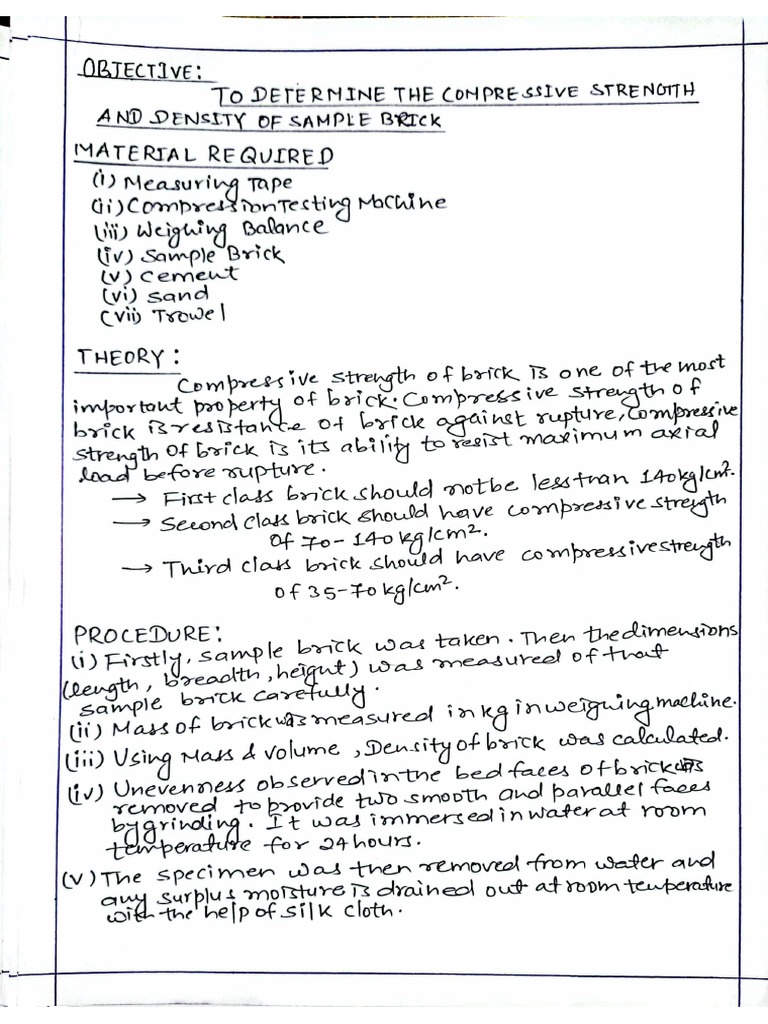 OBJECTIVE:
TO DETERMINE THE COMPRESSIVE STRENGTH
AND DENSITY OF SAMPLE BRICK
MATERIAL REQUIRED
(i) Measuring Tape
(ii) Compression Testing Machine
(iii) Weighing Balance
(iv) Sample Brick
(v) Cement
(vi) Sand
(vii) Trowel
THEORY:
Compressive strength of brick is one of the most
important property of brick. Compressive strength of
brick is resistance of brick against rupture, Compressive
strength of brick is its ability to resist maximum axial
load before rupture.
→ First class brick should not be less than 140 kg/cm².
→ Second class brick should have compressive strength
of 70-140 kg/cm².
→ Third class brick should have compressive strength
of 35-70 kg/cm².
PROCEDURE:
(i) Firstly, sample brick was taken. Then the dimensions
(length, breadth, height) was measured of that
sample brick carefully.
(ii) Mass of brick was measured in kg in weighing machine.
(iii) Using Mass & volume, Density of brick was calculated.
(iv) Unevenness observed in the bed faces of brick was
removed to provide two smooth and parallel faces
by grinding. It was immersed in water at room
temperature for 24 hours.
(v) The specimen was then removed from water and
any surplus moisture is drained out at room temperature
with the help of silk cloth.